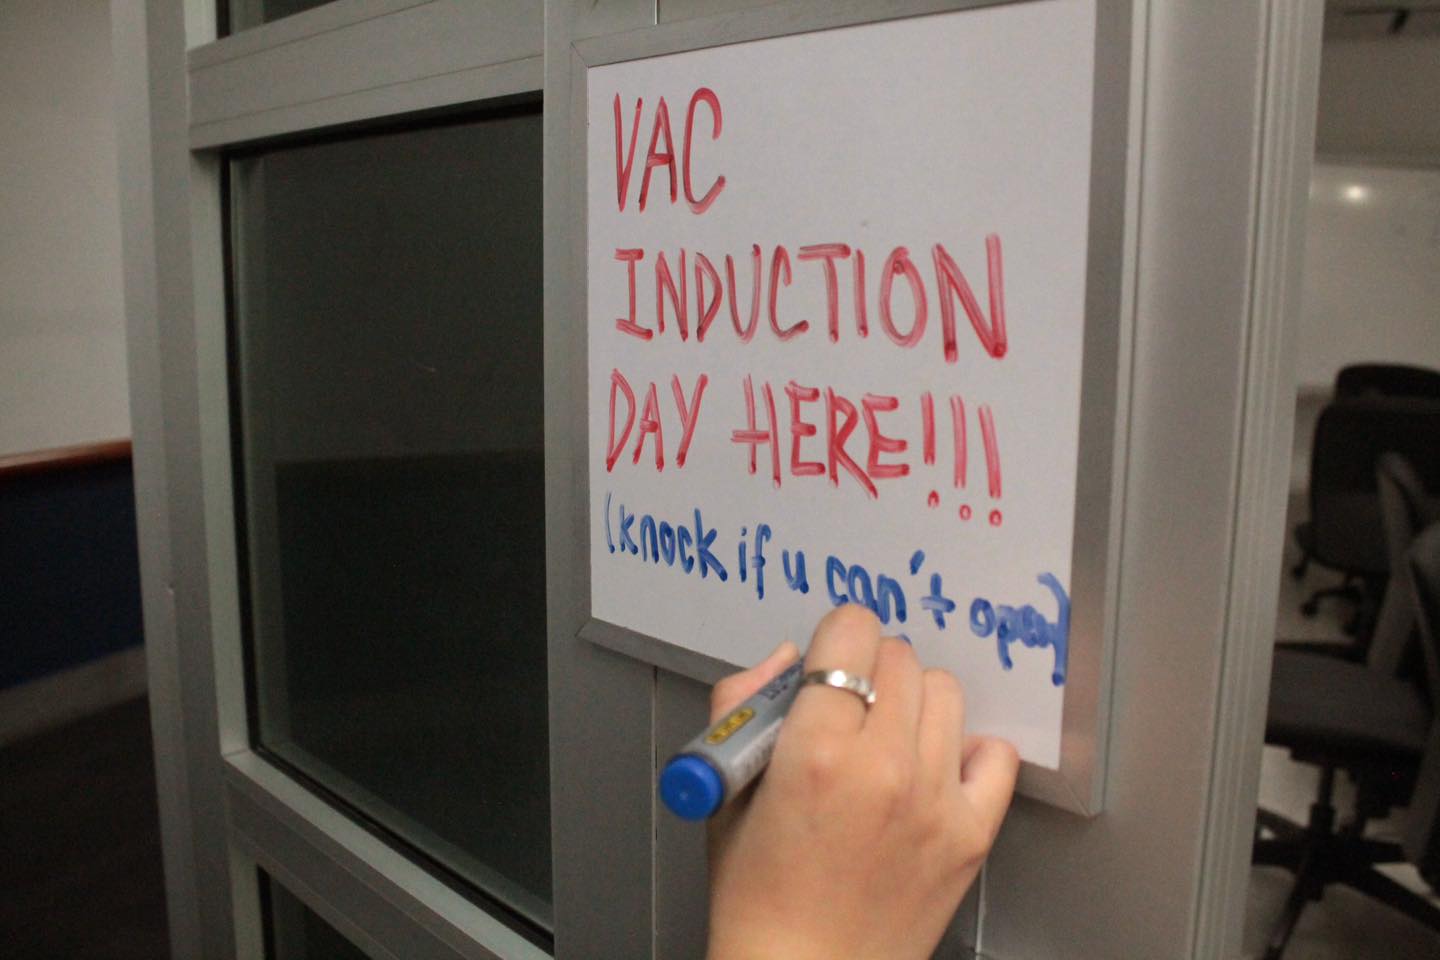 VAC
INDUCTION
DAY HERE!!!
(knock if u can't open)